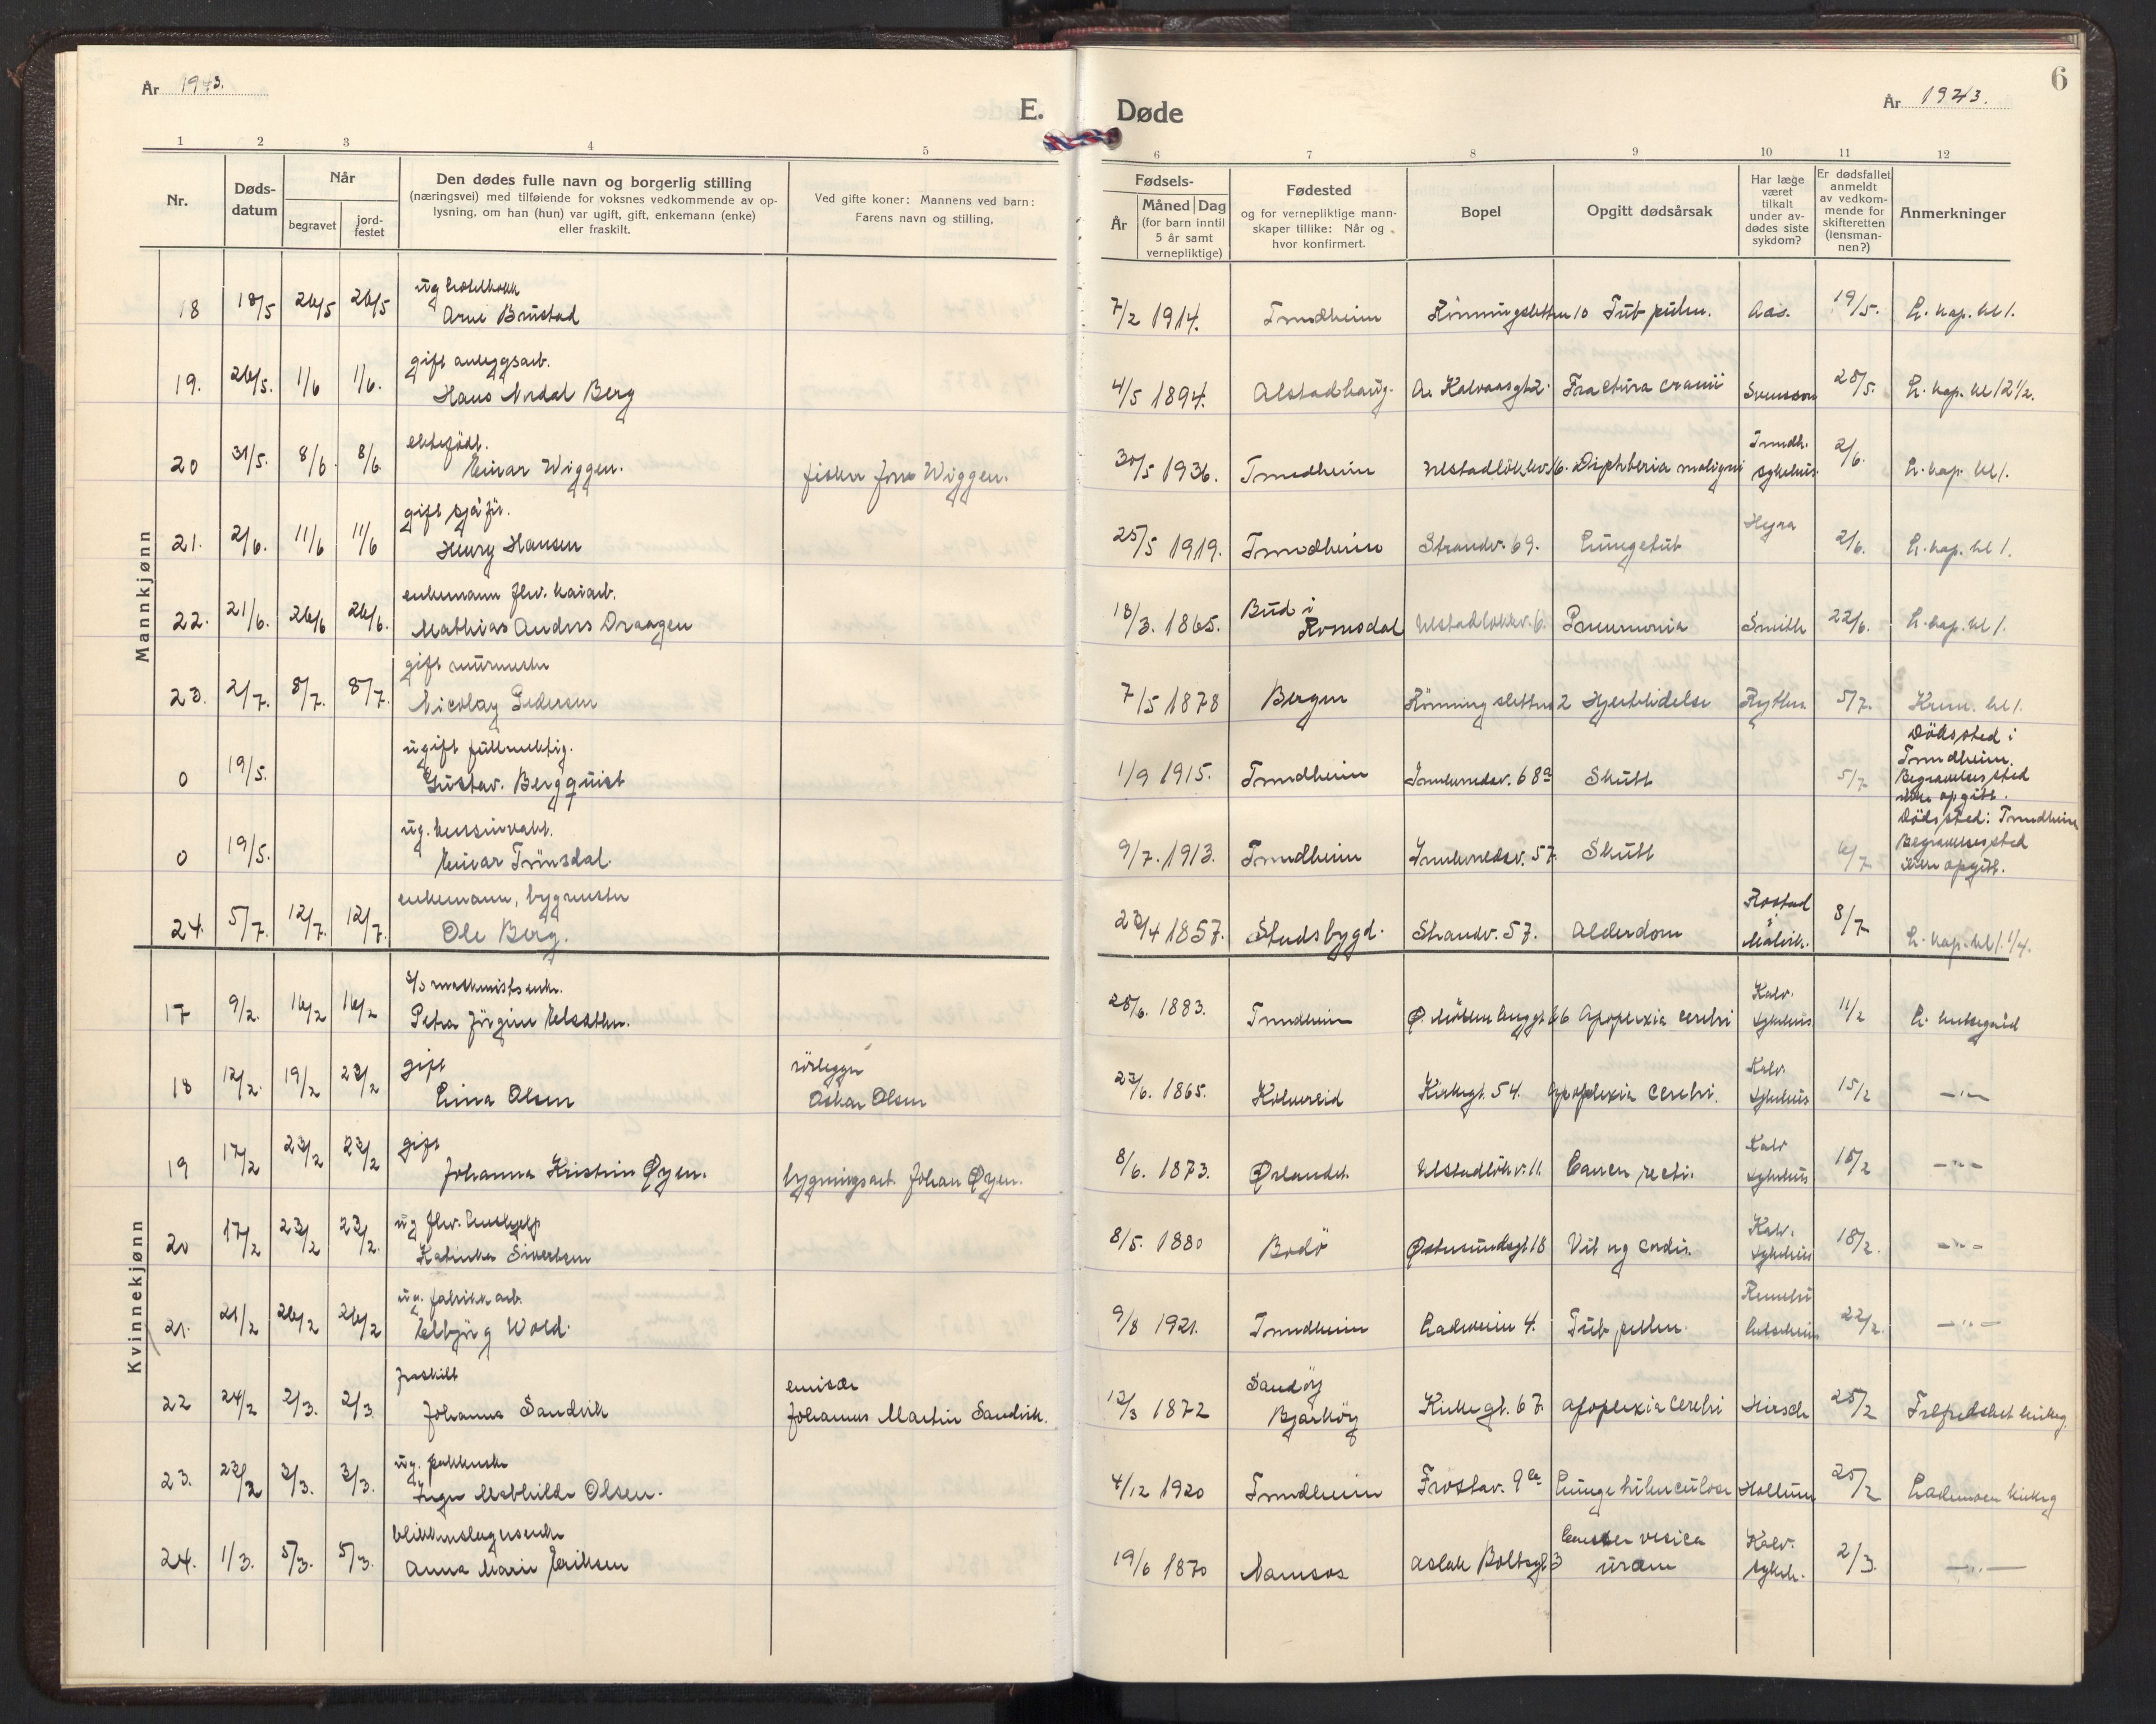 År 1943.
E.
1 2 3 4 5
Nr.
Døds-
datum
Når
begravet
jord-
festet
Den dødes fulle navn og borgerlig stilling
(næringsvei) med tilføiende for voksnes vedkommende av op-
lysning, om han (hun) var ugift, gift, enkemann (enke)
eller fraskilt.
Ved gifte koner: Mannens ved barn:
Farens navn og stilling,
Mannkjønn
18 18/5 26/5 26/5 ug
Arne Brustad
gift anleggsarb.
19. 26/5. 1/6 1/6. Hans Nordal Berg
ektefødt.
20 31/5. 8/6. 8/6 Einar Wiggen. fisker Jens Wiggen.
gift sjåfør.
21. 2/6. 11/6 11/6 Henry Hansen
enkemann fhv. kaiarb.
22. 21/6. 26/6 26/6. Mathias Anders Draagen
gift murmester
23. 2/7. 8/7. 8/7. Nicolay Pedersen
ugift fullmektig.
0 19/5. Gustav. Bergquist
ug.
0 19/5. Einar Trønsdal.
enkemann, bygmester
24. 5/7. 12/7. 12/7. Ole Berg.
Kvinnekjønn
maskinistenke.
17 9/2. 16/2 16/2 Petra Jørgine
gift rørlegger
18 12/2. 19/2 23/2 Lina Olsen Oskar Olsen
gift
19 17/2 23/2 23/2 Johanna Kristine Øyen. bygningsarb. Johan Øyen.
ug fhv. hushjelp
20 17/2 23/2 23/2. Katinka Sivertsen
ug. fabrikkarb.
21. 21/2 26/2 26/2 Eldbjørg Wold.
fraskilt emisær
22 24/2 2/3. 2/3 Johanna Sandvik Johannes Martin Sandvik.
ug. pakkerske
23. 23/2 3/3. 3/3. Inger Mathilde Olsen.
blikkenslagerenke
24. 1/3. 5/3. 5/3. Anna Marie Eriksen
6
Døde
År 1943.
6 7 8 9 10 11 12
Fødsels-
År
Måned Dag
(for barn inntil
5 år samt
vernepliktige)
Fødested
og for vernepliktige mann-
skaper tillike: Når og
hvor konfirmert.
Bopel
Opgitt dødsårsak
Har læge
været
tilkalt
under av-
dødes siste
sykdom?
Er dødsfallet
anmeldt
av vedkom-
mende for
skifteretten
(lensman-
nen?)
Anmerkninger
7/2 1914. Trondheim Rønningsletten 10 Tub. pulm. Aas. 19/5. L. kap. kl 1.
4/5 1894. Alstadhaug. A. Kalvaasgt 2. Fractura cranii Svensson 28/5. L. kap. kl 12 1/2.
30/5 1936. Trondheim Ulstadløkkv. 16. Diphteria maligni Trondh. sykehus. 2/6. L. kap. kl 1.
25/5 1919. Trondheim Strandv. 69. Lungetub Hegra 2/6. L. kap. kl 1.
18/3. 1865. Bud i Romsdal Ulstadløkkv. 6. Pneumonia Smith 22/6. L. kap. kl 1.
7/5 1878 Bergen Rønningsletten 2 Hjertelidelse Rytter 5/7. Krem. kl 1.
1/9 1915. Trondheim Innherredsv. 68a Skutt 5/7 Dødssted i
Trondheim.
Begravelsessted
ikke opgitt.
9/7. 1913. Trondheim Innherredsv. 57. Skutt 6/7 Dødssted: Trondheim
Begravelsessted
ikke opgitt.
23/4 1857. Stadsbygd. Strandv. 57. Alderdom Rostad 8/7 L. kap. kl 1. 1/4.
28/6. 1883. Trondheim Apoplexia cerebri Kalv. sykehus 11/2
23/6. 1865. Kolvereid Kirkegt. 54. Apoplexia cerebri. Kalv. sykehus 15/2 —"—
8/6. 1873. Ørlandet. Ulstadløkv. 11. Cancer recti. Kalv sykehus 18/2 —"—
8/5. 1880 Bodø Østersundsgt 18 Vit. og cordis. Kalv. sykehus 18/2. —"—
9/8 1921. Trondheim Ladeveien 4. Tub. pulm. 22/2. —"—
12/3 1872 Sandøy
Bjarkøy Kirkegt. 67. apoplexia cerebri Hirsch 25/2 Tilfredshet kirkeg.
4/12 1920 Trondheim Frostav. 9 Lungetuberculose 25/2 Lademoen kirkeg
19/6 1870 Namsos Aslak Boltsgt. 3 Cancer vesica
urinae Kalv. sykeh. 2/3. —"—